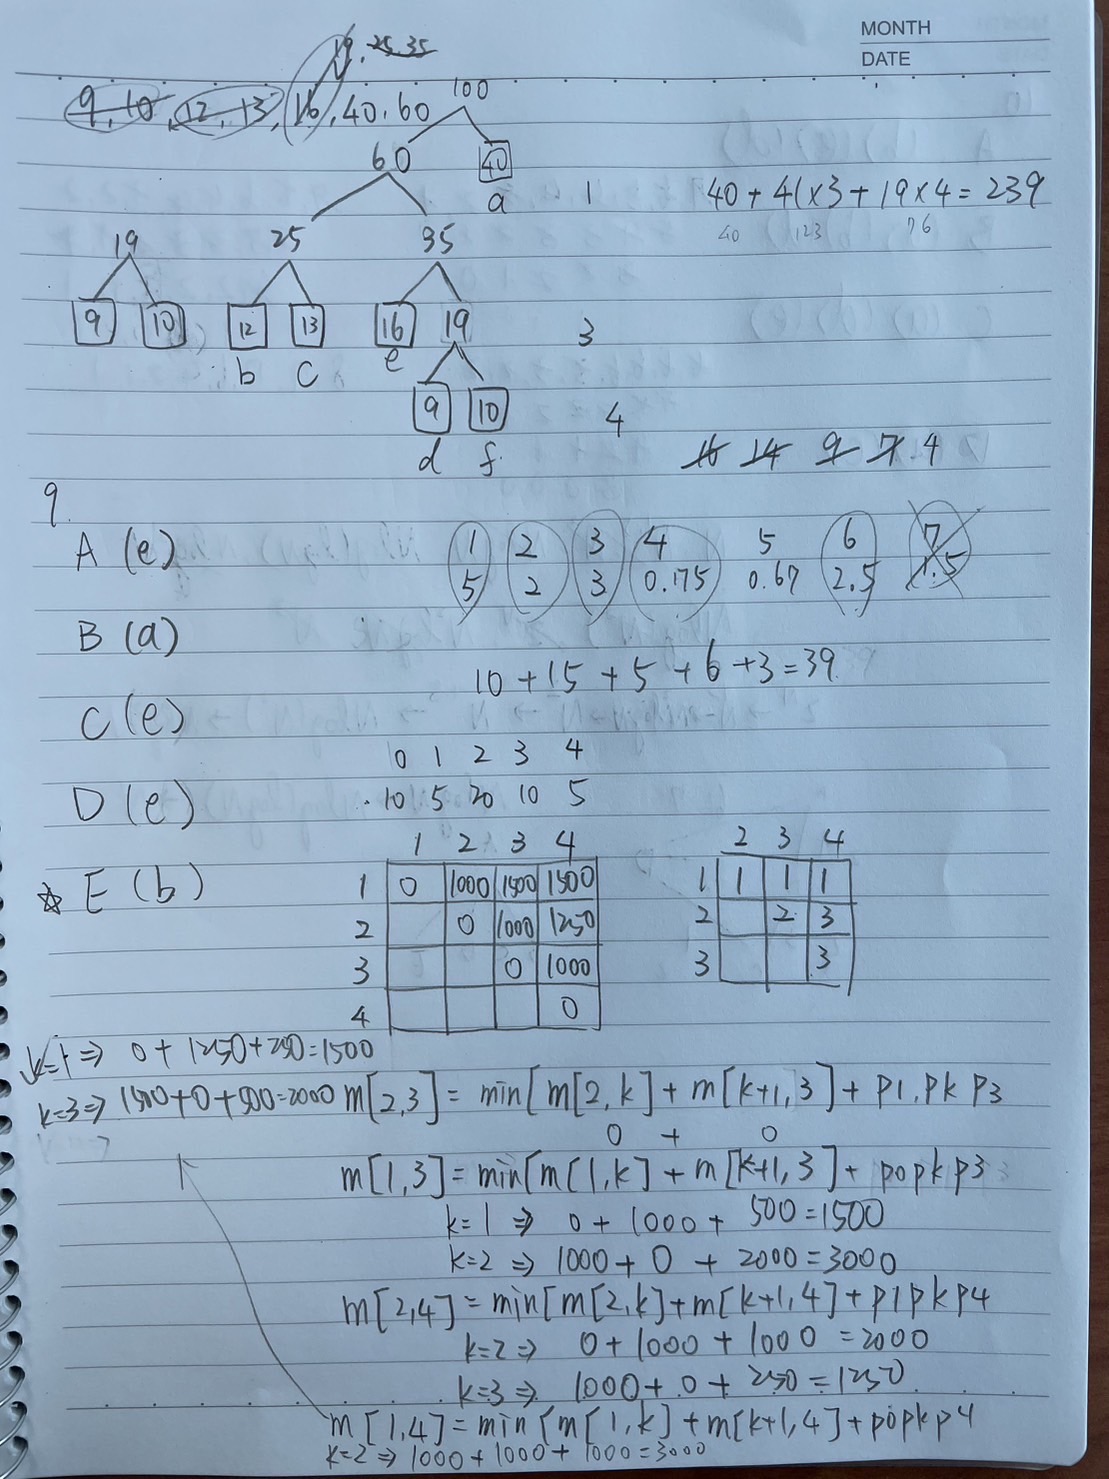 MONTH
DATE
19, 25, 35
9, 10, 12, 13, 16, 40, 60
100
60 40
a 1
40 + 41×3 + 19×4 = 239
40 123 76
19 25 35
9 10 12 13 16 19 3
b c e
9 10 4
d f
16 14 9 7 4
9.
A (e)
1 2 3 4 5 6 7
5 2 3 0.175 0.67 2.5 1.5
B (a)
10 + 15 + 5 + 6 + 3 = 39
C (e)
0 1 2 3 4
D (e)
10 5 20 10 5
1 2 3 4
2 3 4
☆ E (b)
1 0 1000 1500 1500
1 1 1 1
2 0 1000 1250
2 2 3
3 0 1000
3 3
4 0
k=1 ⇒ 0 + 1250 + 250 = 1500
k=3 ⇒ 1500 + 0 + 500 = 2000
m[2,3] = min[m[2,k] + m[k+1,3] + p1.pk p3
0 + 0
m[1,3] = min[m[1,k] + m[k+1,3] + p0pkp3
k=1 ⇒ 0 + 1000 + 500 = 1500
k=2 ⇒ 1000 + 0 + 2000 = 3000
m[2,4] = min[m[2,k] + m[k+1,4] + p1pkp4
k=2 ⇒ 0 + 1000 + 1000 = 2000
k=3 ⇒ 1000 + 0 + 250 = 1250
m[1,4] = min[m[1,k] + m[k+1,4] + p0pkp4
k=2 ⇒ 1000 + 1000 + 1000 = 3000